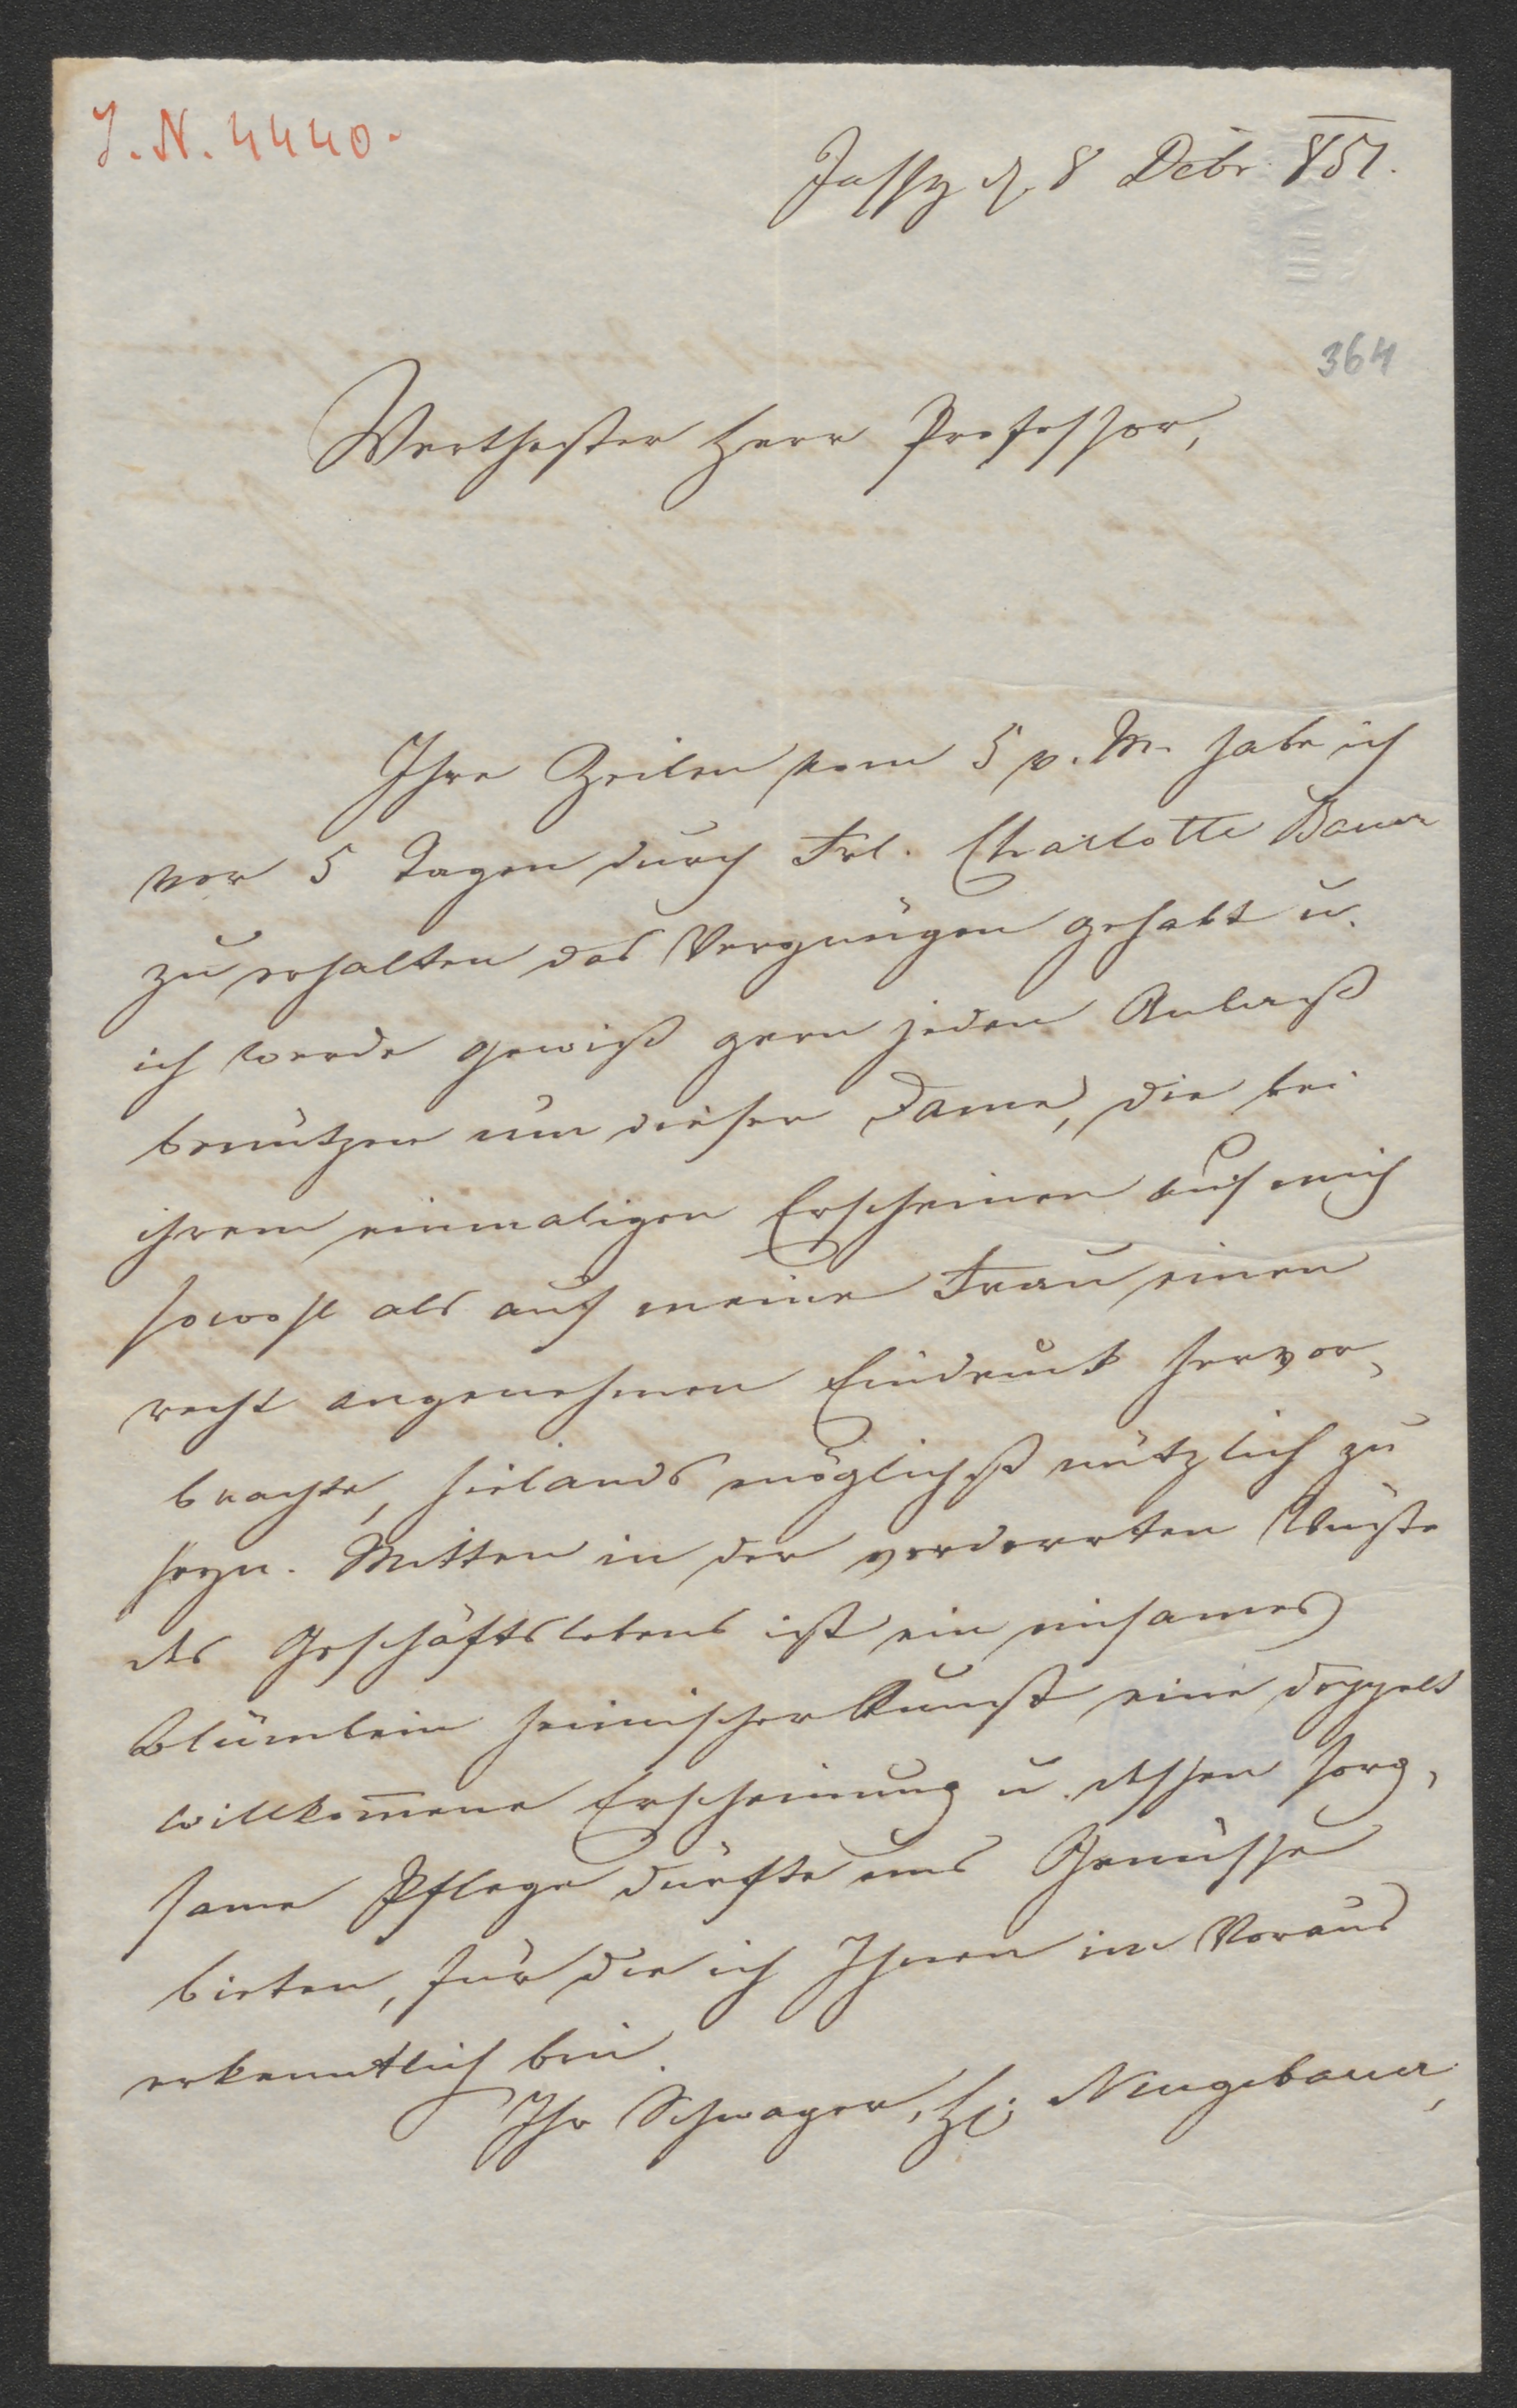 J. N. 4440.
Jassy d. 8 Debr. 851.
364
Werthester Herr Professor,
Ihre Zeilen vom 5 v. M. habe ich
vor 5 Tagen durch Frl. Charlotte Bauer
zu erhalten das Vergnügen gehabt u.
ich werde gewiß gern jeden Anlaß
benützen um dieser Dame, die bei
ihrem einmaligen Erscheinen auf mich
sowohl als auf meine Frau einen
recht angenehmen Eindruck hervor-
brachte, hielands möglichst nützlich zu
seyn. Mitten in der verdorrten Wüste
des Geschäftslebens ist ein einsames
Blümlein heimischer Kunst eine doppelt
willkom̄ene Erscheinung u. dessen sorg-
same Pflege dürfte uns Genüsse
bieten, für die ich Ihnen im Voraus
erkenntlich bin.
Ihr Schwager, Neugebauer